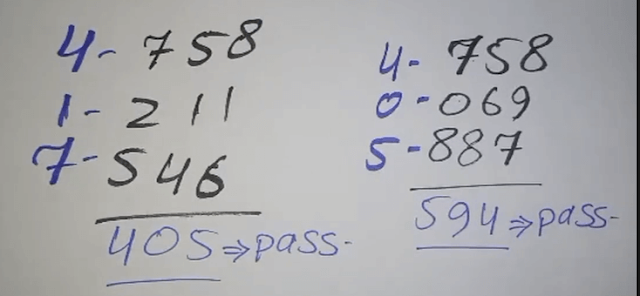 4- 758
1- 211
7- 546
405 ⇒ pass-
4- 758
0-069
5-887
594 ⇒ pass-